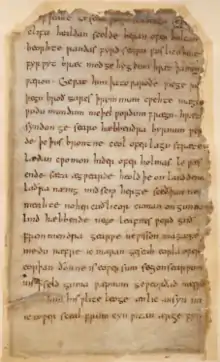 clifu healdan scolde beran ofer bolcan
beorhte randas fyrd searu fuslicu hine
fyrwyt bræc mod gehygdum hwæt þa men
wæron. Gewat him þa to waroðe wicge ri
þegn hroð gares þrymmum cwehte mægen
wudu mundum meþel wordum frægn hwæt
syndon ge searo hæbbendra byrnum were
de þe þus brontne ceol ofer lagu stræte
lædan cwomon hider ofer holmas le wæs
ende sæta æg wearde heold þe on land dena
laðra nænig mid scip herge sceðþan ne
meahte no her cuðlicor cuman ongunnon
lind hæbbende ne ge leafnes word guð
fremmendra gearwe ne wisson maga ge
medu næfre ic maran geseah eorla ofer
eorþan ðonne is eower sum secg on searwum
seld guma wæpnum geweorðad næf
him his wlite leoge ænlic ansyn nu
ic eower sceal frum cyn witan ær ge fyr